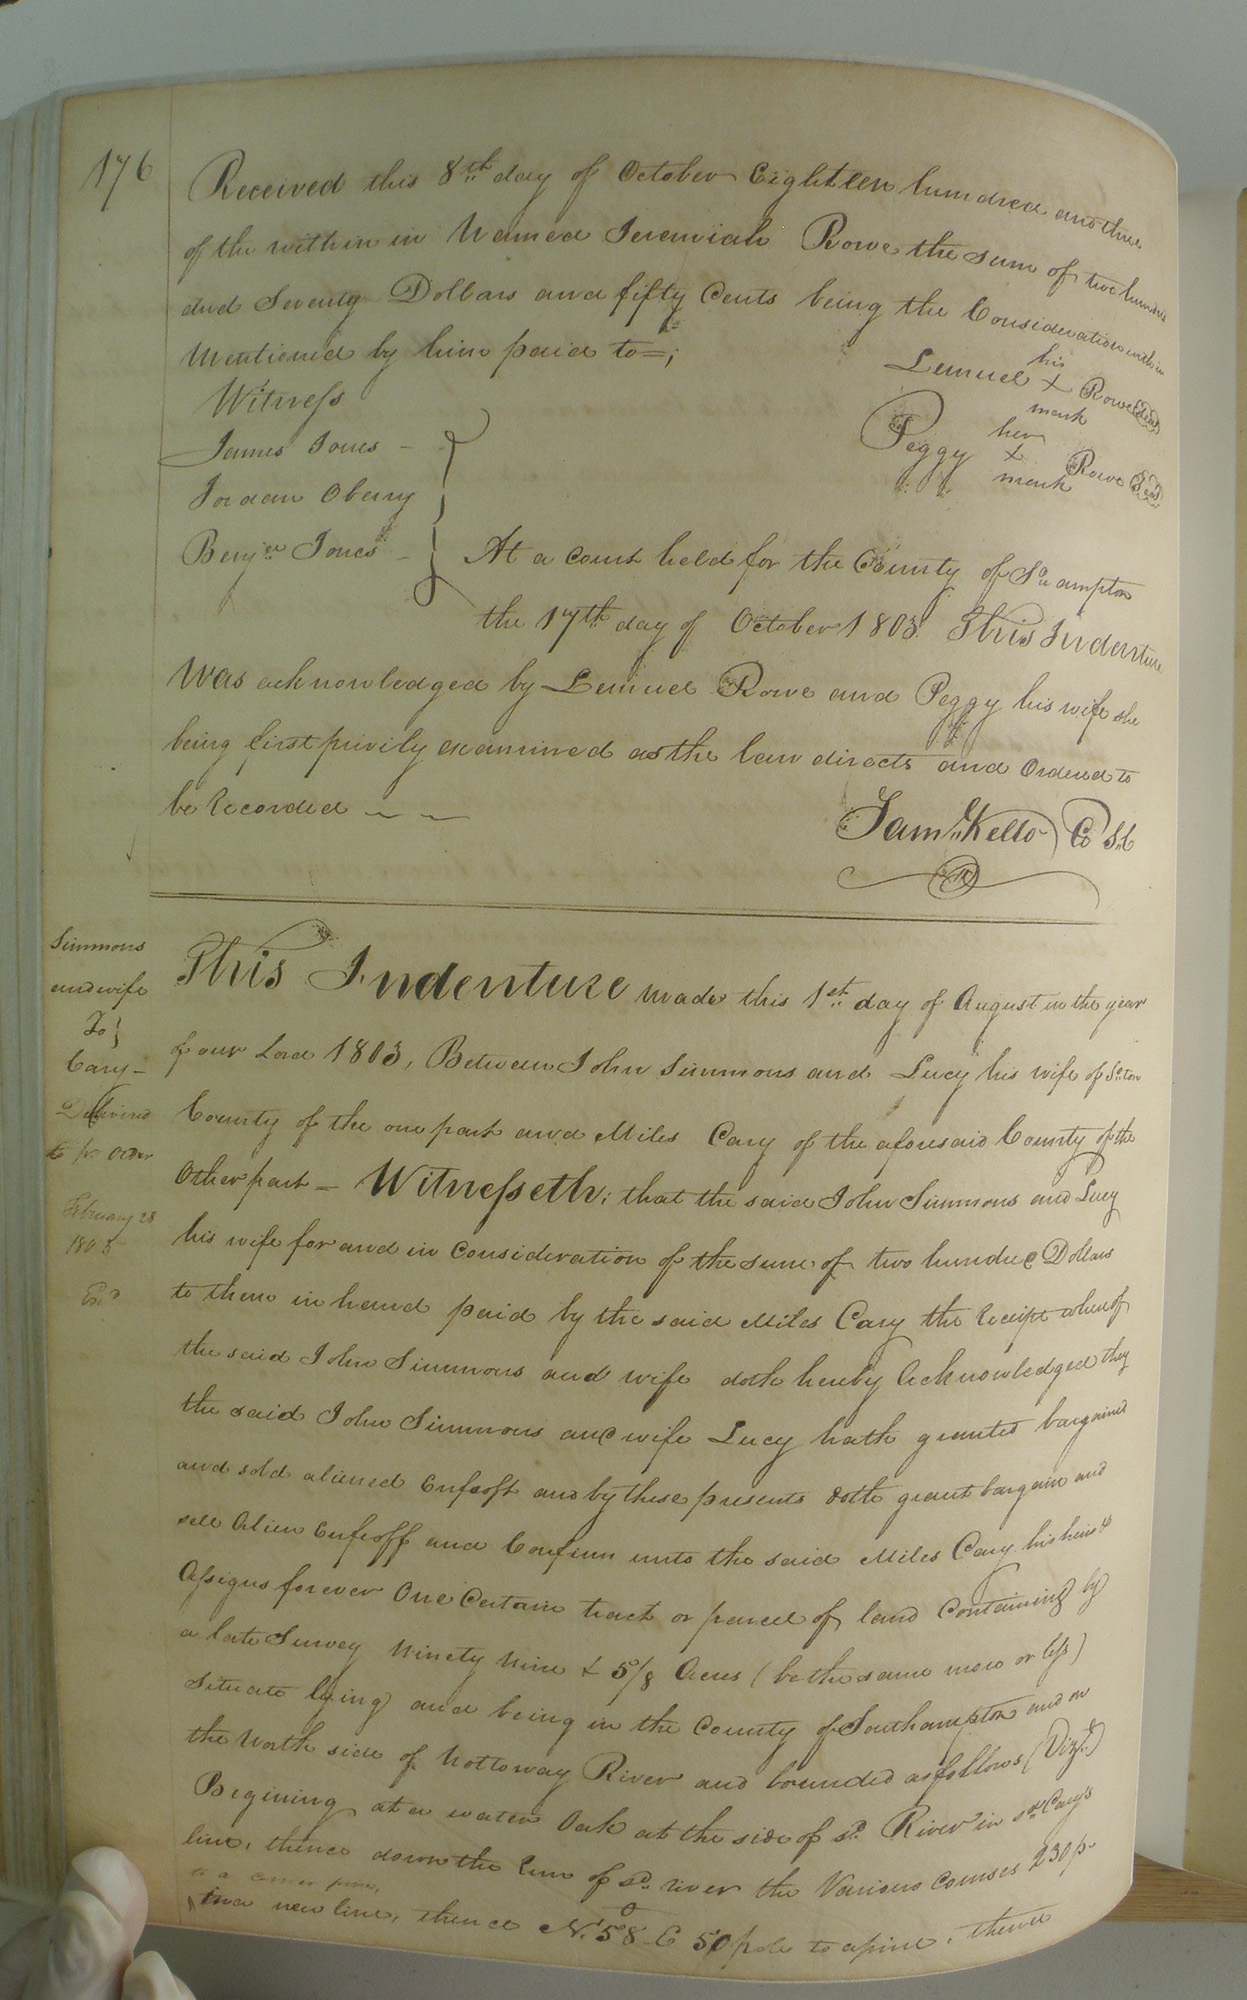 176
Received this 8th day of October Eighteen hundred and three
of the within in Named Jeremiah Rowe the sum of two hundred
and Seventy Dollars and fifty Cents being the Consideration within
Mentioned by him paid to=;
Witness
his
Lemuel + Rowe Seal
mark
James Jones -
her
Peggy + Rowe Seal
mark
Jordan Oberry
Benja Jones -
At a Court held for the County of So ampton
the 17th day of October 1803. This Indenture
Was acknowledged by Lemuel Rowe and Peggy his wife she
being first privily examined as the law directs and Ordered to
be Recorded
Saml Kello
Simmons
and wife
To
Cary -
Delivered
to pr order
February 28
1805
This Indenture made this 1st day of August in the year
of our Lord 1803, Between John Simmons and Lucy his wife of So ton
County of the one part and Miles Cary of the aforesaid County of the
Other part - Witnesseth; that the said John Simmons and Lucy
his wife for and in Consideration of the sum of two hundred Dollars
to them in hand paid by the said Miles Cary the Receipt whereof
the said John Simmons and wife doth hereby Acknowledged they
the said John Simmons and wife Lucy hath granted bargained
and sold aliened Enfeoft and by these presents doth grant bargain and
sell Alien Enfeoff and Confirm unto the said Miles Cary his heirs &
Assigns forever One Certain tract or parcel of land Containing by
a late Survey Ninety Nine & 5/8 Acres (be the same more or less)
Situate lying and being in the County of Southampton and on
the North side of Nottoway River and bounded as follows (Vizt.)
Begining at a water Oak at the side of sd. River in sd Carys
line, thence down the Run of sd. river the Various Courses 230 p.
to a corner pine,
in a new line, thence No. 58 E 50 pole to a pine, thence